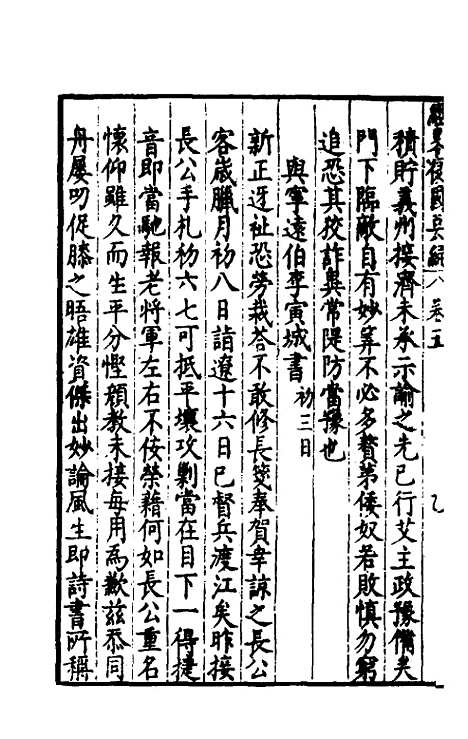 經畧復國要編 卷五 七
積貯義州接濟未承示諭之先已行艾主政豫備矣
門下臨敵自有妙筭不必多贅第倭奴若敗慎勿窮
追恐其狡詐異常隄防當豫也
與寧遠伯李寅城書 初三日
新正迓祉恐勞裁荅不敢修長箋奉賀幸諒之長公
客歲臘月初八日詣遼十六日已督兵渡江矣昨接
長公手札初六七可抵平壤攻剿當在目下一得捷
音即當馳報老將軍左右不佞榮藉何如長公重名
懷仰雖久而生平分慳顏教未接每用爲歉茲忝同
舟屢叨促膝之晤雄資傑出妙論風生即詩書所稱